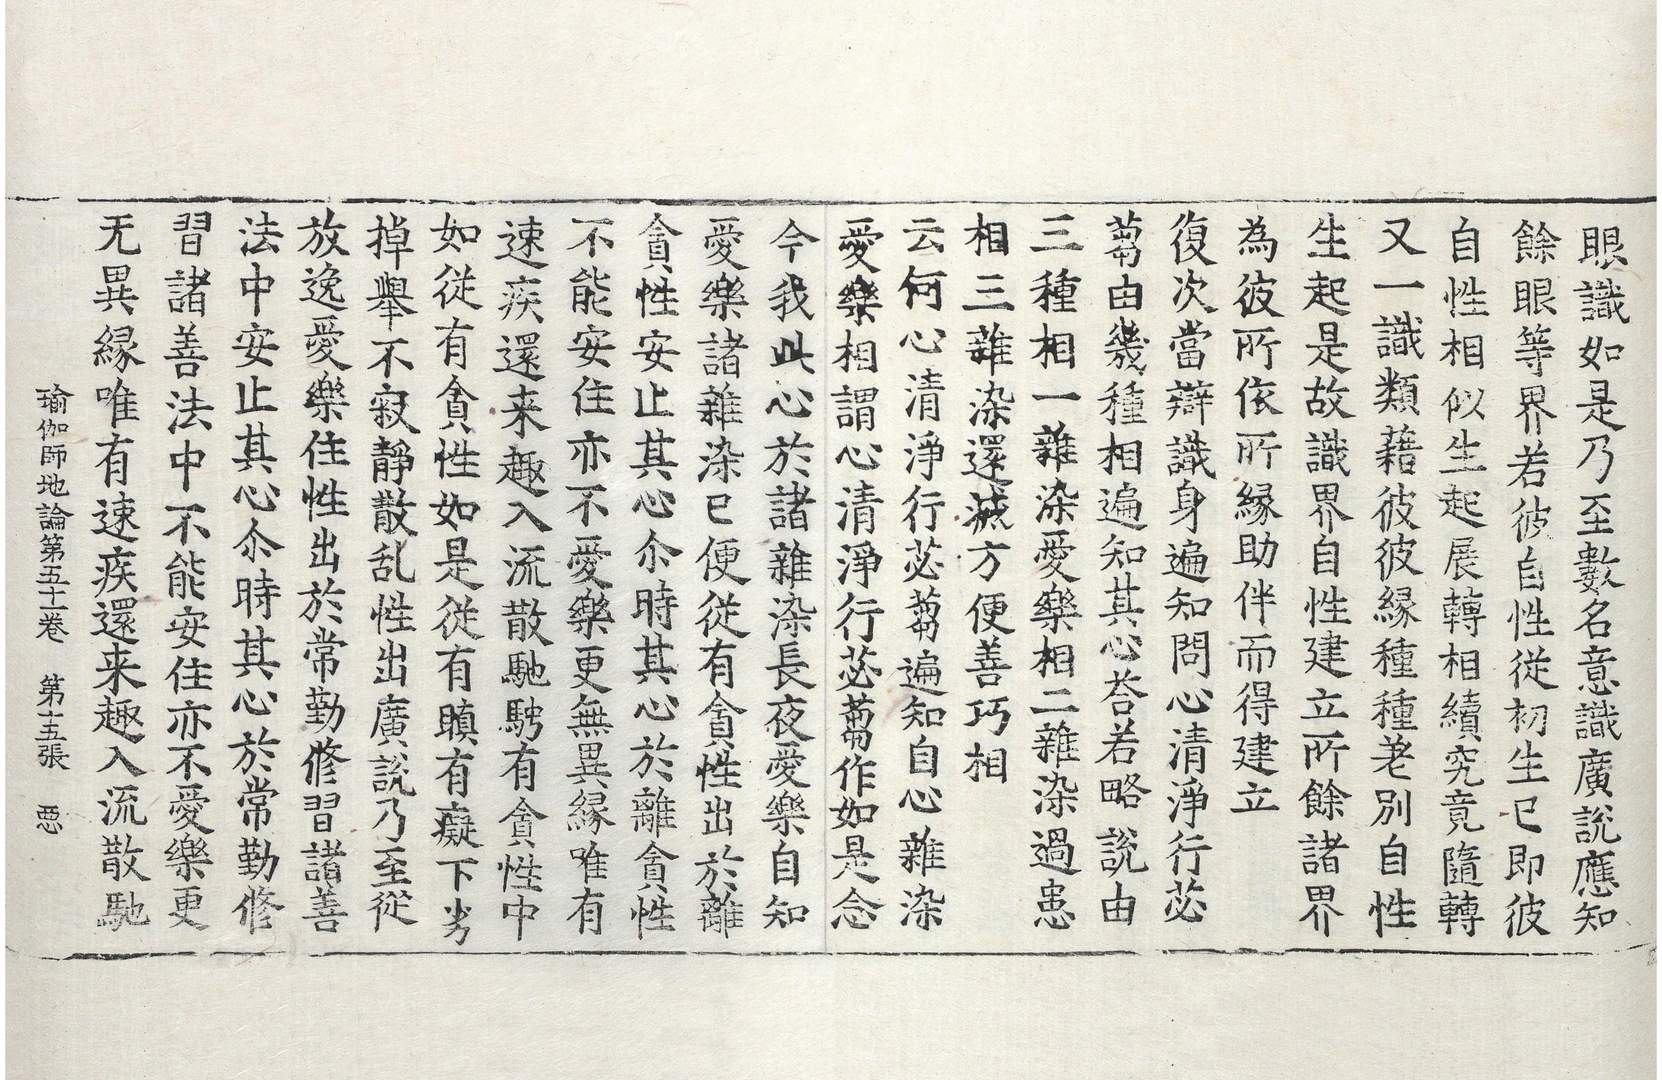 眼識如是乃至數名意識廣説應知
餘眼等界若彼自性從初生已即彼
自性相似生起展轉相續究竟隨轉
又一識類藉彼彼縁種種差別自性
生起是故識界自性建立所餘諸界
為彼所依所縁助伴而得建立
復次當辯識身遍知問心清淨行苾
蒭由幾種相遍知其心荅若略説由
三種相一雜染愛樂相二雜染過患
相三雜染還滅方便善巧相
云何心清淨行苾蒭遍知自心雜染
愛樂相謂心清淨行苾蒭作如是念
今我此心於諸雜染長夜愛樂自知
愛樂諸雜染已便從有貪性出於離
貪性安止其心尒時其心於離貪性
不能安住亦不愛樂更無異縁唯有
速疾還来趣入流散馳騁有貪性中
如從有貪性如是從有瞋有癡下劣
掉舉不寂靜散乱性出廣説乃至從
放逸愛樂住性出於常勤修習諸善
法中安止其心尒時其心於常勤修
習諸善法中不能安住亦不愛樂更
无異縁唯有速疾還来趣入流散馳
瑜伽師地論第五十一卷　第十五張　惡